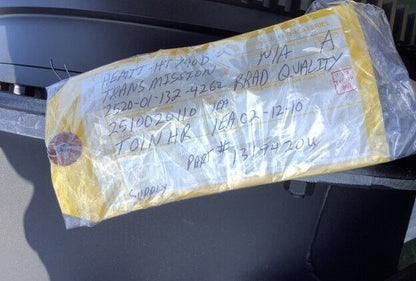 REMIT-HT 740D N/A A
TRANSMISSION
2520-01-132-4262 BRAD QUALITY
2510020110 1ea
TOIN HR 1EA 02-12-10
PART # 1319420W
SUPPLY